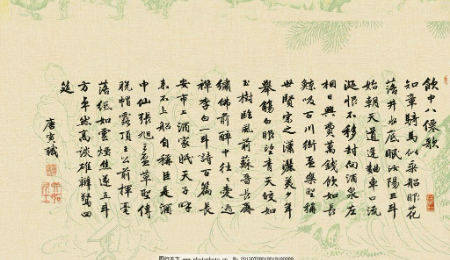 飲中八僊歌
知章騎馬似乘船眼花
落井水底眠汝陽三斗
始朝天道逢麴車口流
涎恨不移封向酒泉左
相日興費萬錢飲如長
鯨吸百川銜杯樂聖稱
世賢宗之瀟灑美少年
舉觴白眼望青天皎如
玉樹臨風前蘇晉長齋
繡佛前醉中往〻愛逃
禪李白一斗詩百篇長
安市上酒家眠天子呼
來不上船自稱臣是酒
中仙張旭三盃草聖傳
脫帽露頂王公前揮毫
落紙如雲煙焦遂五斗
方卓然高談雄辯驚四
筵
唐寅識